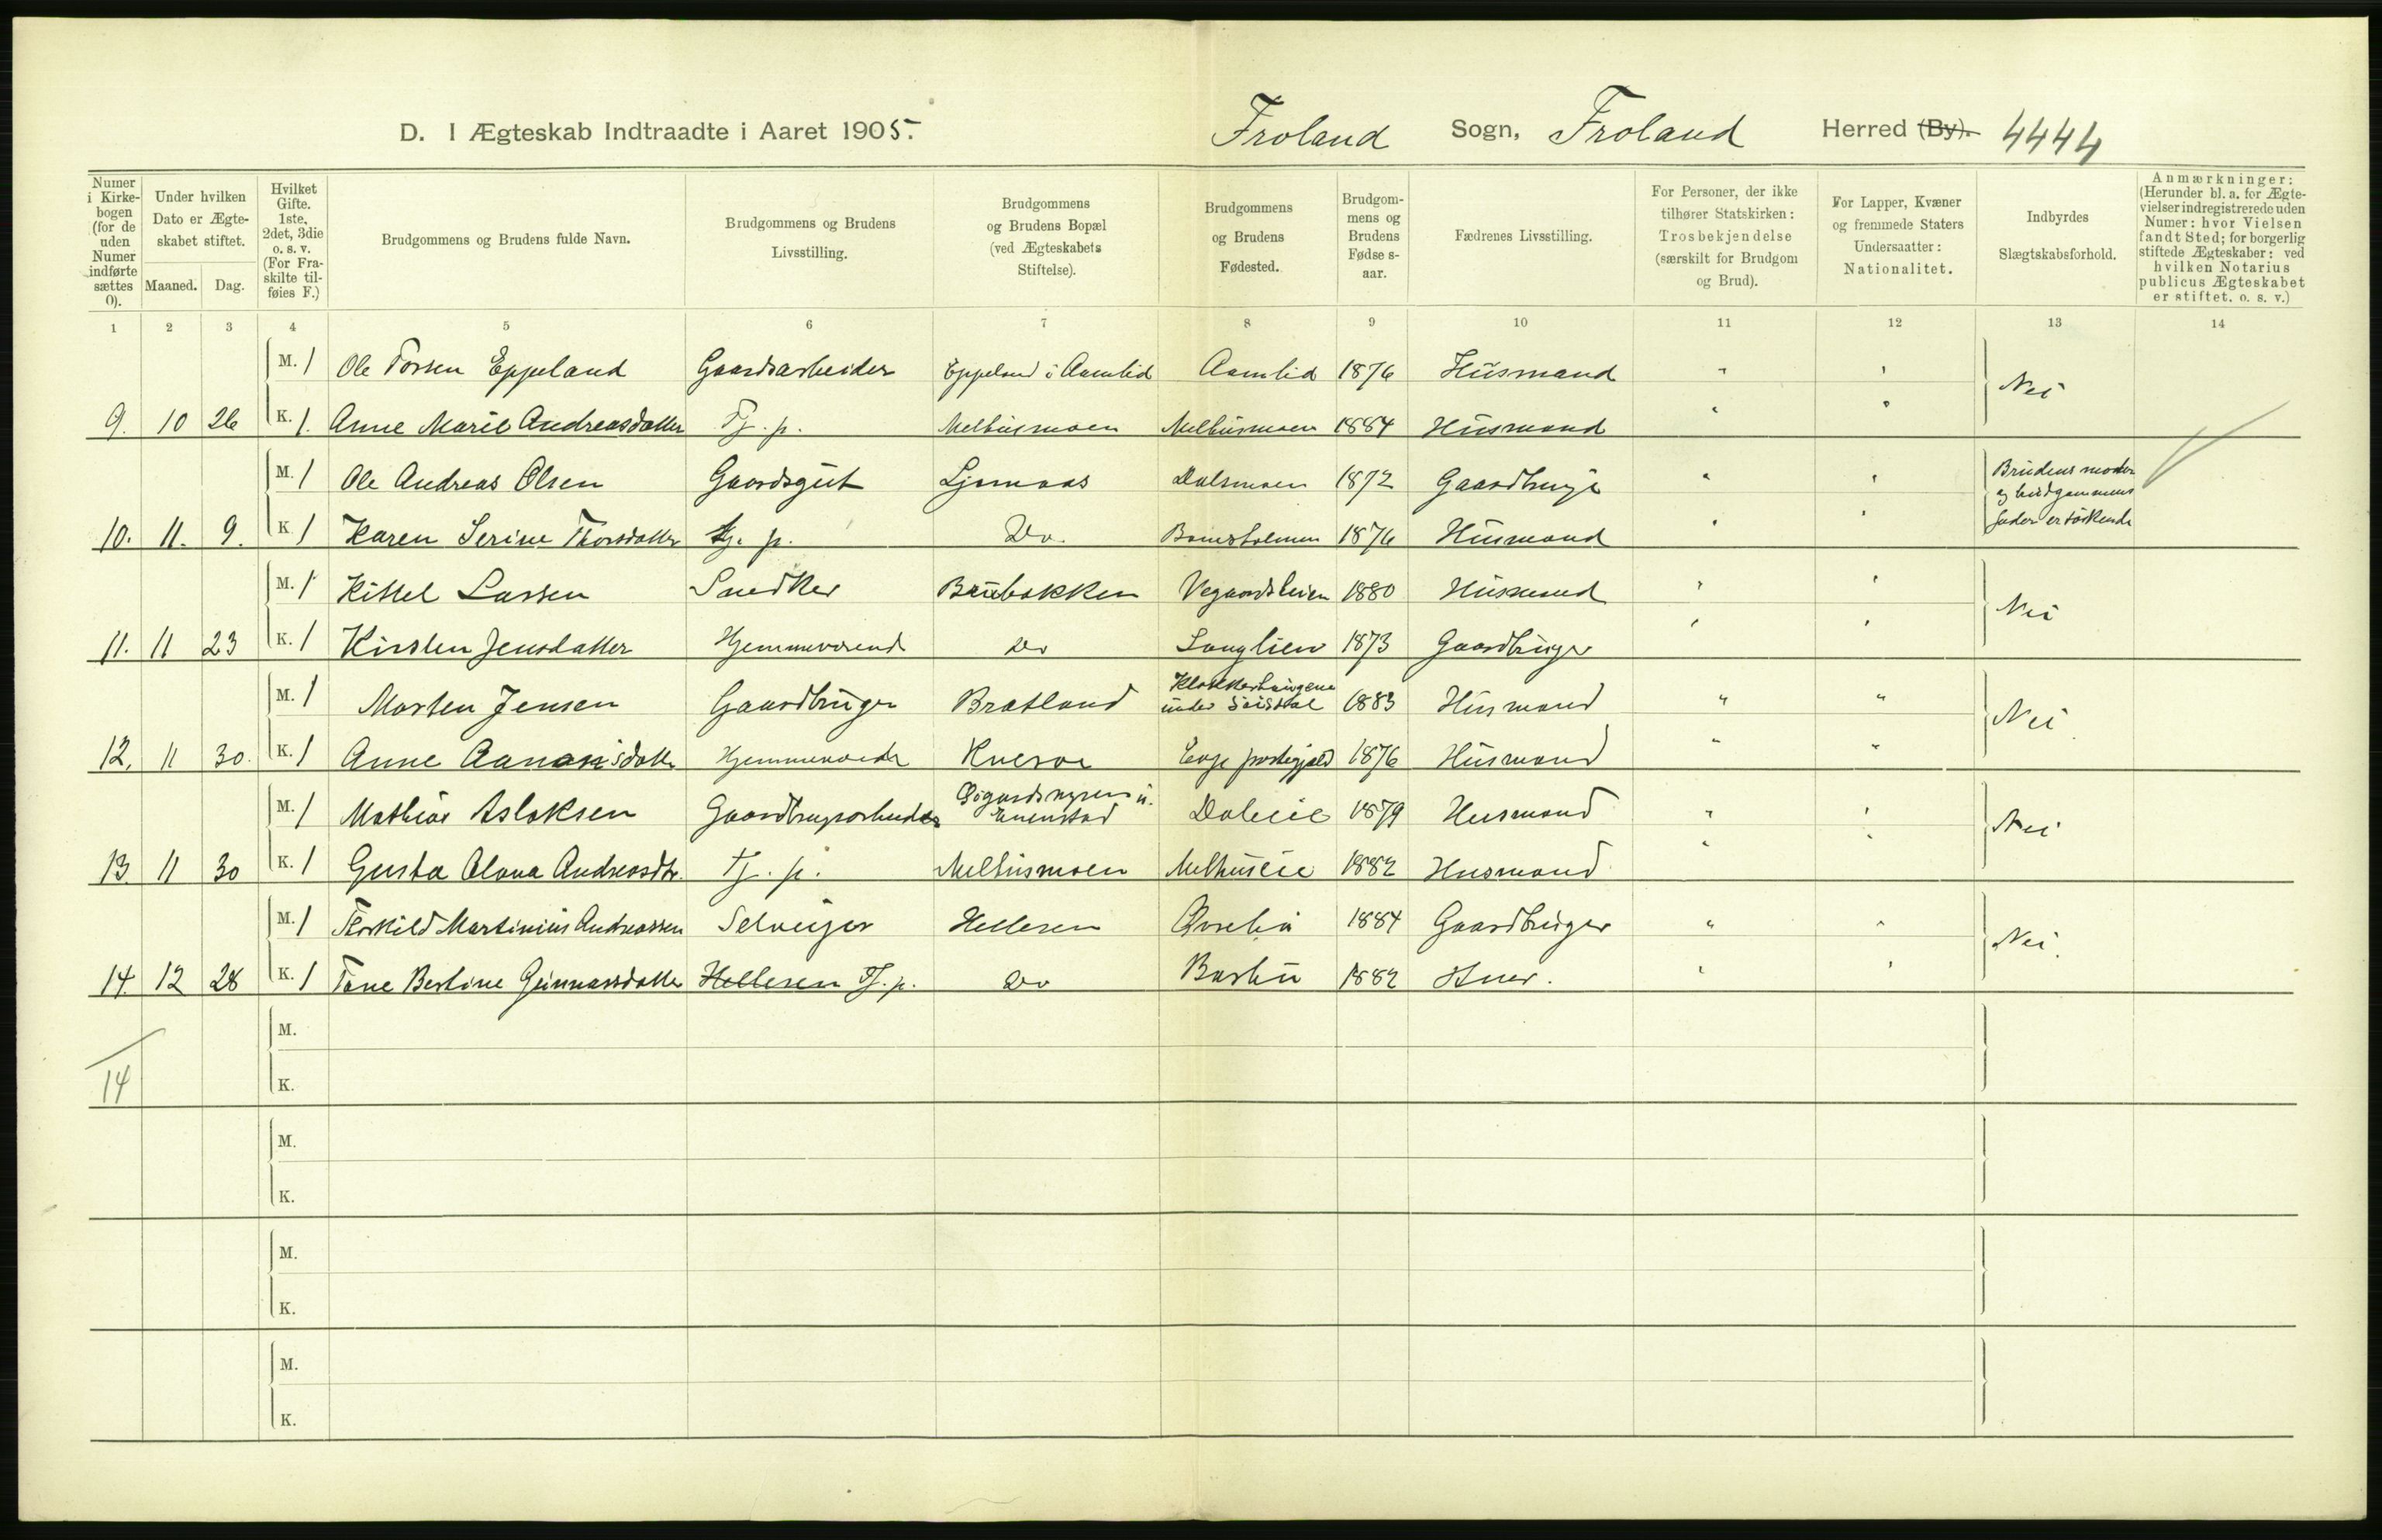 D. I Ægteskab Indtraadte i Aaret 1905. Froland Sogn, Froland Herred (By). 4444
Numer i Kirke-bogen (for de uden Numer indførte sættes 0).
Under hvilken Dato er Ægte-skabet stiftet.
Maaned. Dag.
Hvilket Gifte. 1ste, 2det, 3die o. s. v. (For Fra-skilte til-føies F.)
Brudgommens og Brudens fulde Navn.
Brudgommens og Brudens Livsstilling.
Brudgommens og Brudens Bopæl (ved Ægteskabets Stiftelse).
Brudgommens og Brudens Fødested.
Brudgom-mens og Brudens Fødse s-aar.
Fædrenes Livsstilling.
For Personer, der ikke tilhører Statskirken: Trosbekjendelse (særskilt for Brudgom og Brud).
For Lapper, Kvæner og fremmede Staters Undersaatter: Nationalitet.
Indbyrdes Slægtskabsforhold.
Anmærkninger: (Herunder bl. a. for Ægte-vielser indregistrerede uden Numer: hvor Vielsen fandt Sted; for borgerlig stiftede Ægteskaber: ved hvilken Notarius publicus Ægteskabet er stiftet. o. s. v.)
1 2 3 4 5 6 7 8 9 10 11 12 13 14
M. 1 Ole Torsen Eppeland Gaardsarbeider Eppeland i Aamlid Aamlid 1876 Husmand " " Nei
9. 10 26 K. 1. Anne Marie Andreasdatter Tj. p. Melhusmoen Melhusmoen 1884 Husmand " "
M. 1 Ole Andreas Olsen Gaardsgut Ljomaas Dalsmoen 1872 Gaardbruger " " Brudens moder og brudgommens fader er søskende
10. 11. 9. K 1 Karen Serine Thorsdatter tj. p. Do. 1876 Husmand " "
M. 1 Kittel Larsen Snedker Brubakken Vegaardsheien 1880 Husmand " " Nei
11. 11 23 K. 1 Kirsten Jensdatter Hjemmeværend Do Langlien 1873 Gaardbruger " "
M. 1 Morten Jensen Gaardbruger Bratland under 1883 Husmand " " Nei
12. 11 30. K. 1 Anne Aanonsdatter Hjemmeværende Kverve præstegjeld 1876 Husmand " "
M. 1 Mathias Aslaksen Gaardbrugsarbeider Sigurdsmyren u. Evenstad 1879 Husmand " " Nei
13. 11 30 K. 1 Gusta Olava Andreasdtr. Tj. p. Melhusmoen Melhuseie 1882 Husmand " "
M. 1 Thorkild Martinius Andreassen Selveier Hellesen 1884 Gaardbruger " " Nei.
14. 12 28 K. 1 Tone Bertine Gunnarsdatter Hellesen Tj. p. Do Barbu 1882 Husm. " "
M.
14 K.
M.
K.
M.
K.
M.
K.